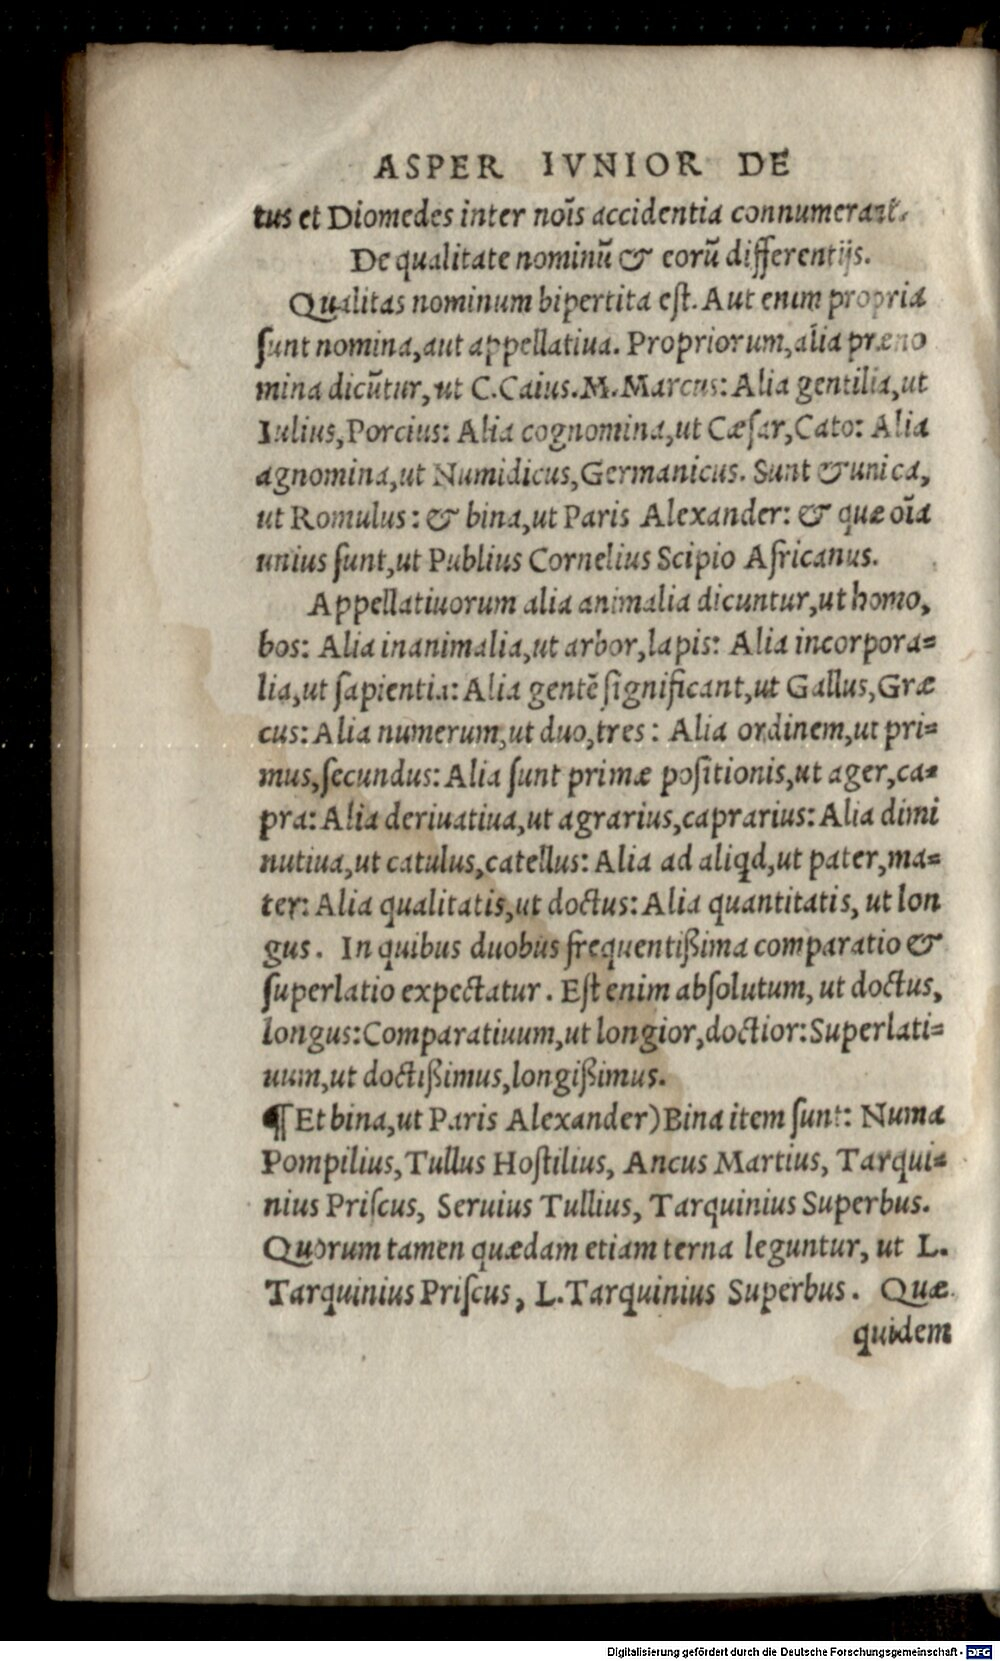 ASPER IVNIOR DE
tus et Diomedes inter noīs accidentia connumerant.
De qualitate nominū & eorū differentijs.
Qualitas nominum bipertita eſt. Aut enim propria
ſunt nomina, aut appellatiua. Propriorum, alia præno
mina dicūtur, ut C. Caius. M. Marcus: Alia gentilia, ut
Iulius, Porcius: Alia cognomina, ut Cæſar, Cato: Alia
agnomina, ut Numidicus, Germanicus. Sunt & unica,
ut Romulus: & bina, ut Paris Alexander: & quæ oīa
unius ſunt, ut Publius Cornelius Scipio Africanus.
Appellatiuorum alia animalia dicuntur, ut homo,
bos: Alia inanimalia, ut arbor, lapis: Alia incorpora=
lia, ut ſapientia: Alia gentē ſignificant, ut Gallus, Græ
cus: Alia numerum, ut duo, tres: Alia ordinem, ut pri=
mus, ſecundus: Alia ſunt primæ poſitionis, ut ager, ca=
pra: Alia deriuatiua, ut agrarius, caprarius: Alia dimi
nutiua, ut catulus, catellus: Alia ad aliqd, ut pater, ma=
ter: Alia qualitatis, ut doctus: Alia quantitatis, ut lon
gus. In quibus duobus frequentißima comparatio &
ſuperlatio expectatur. Eſt enim abſolutum, ut doctus,
longus: Comparatiuum, ut longior, doctior: Superlati=
uum, ut doctißimus, longißimus.
¶ Et bina, ut Paris Alexander) Bina item ſunt: Numa
Pompilius, Tullus Hoſtilius, Ancus Martius, Tarqui=
nius Priſcus, Seruius Tullius, Tarquinius Superbus.
Quorum tamen quædam etiam terna leguntur, ut L.
Tarquinius Priſcus, L. Tarquinius Superbus. Quæ
quidem
Digitalisierung gefördert durch die Deutsche Forschungsgemeinschaft - DFG